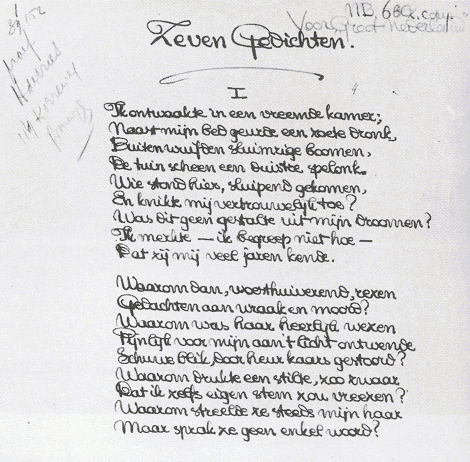 Voor Groot Nederland
Zeven Gedichten.
I
Ik ontwaakte in een vreemde kamer;
Naast mijn bed geurde een zoete dronk,
Buiten wuifden sluimrige boomen,
De tuin scheen een duistre spelonk.
Wie stond hier, sluipend gekomen,
En knikte mij vertrouwelijk toe?
Was dit geen gestalte uit mijn droomen?
Ik merkte — ik begreep niet hoe —
Dat zij mij veel jaren kende.
Waarom dan, woesthuiverend, rezen
Gedachten aan wraak en moord?
Waarom was haar heerlijk wezen
Pijnlijk voor mijn aan 't licht ontwende
Schuwe blik, door heur kaars gestoord?
Waarom drukte een stilte, zoo zwaar
Dat ik zelfs eigen stem zou vreezen?
Waarom streelde ze steeds mijn haar
Maar sprak ze geen enkel woord?